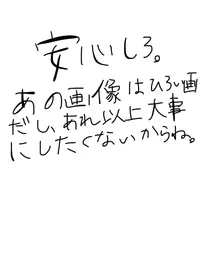 安心しろ。
あの画像はひろい画
だし、あれ以上大事
にしたくないからね。